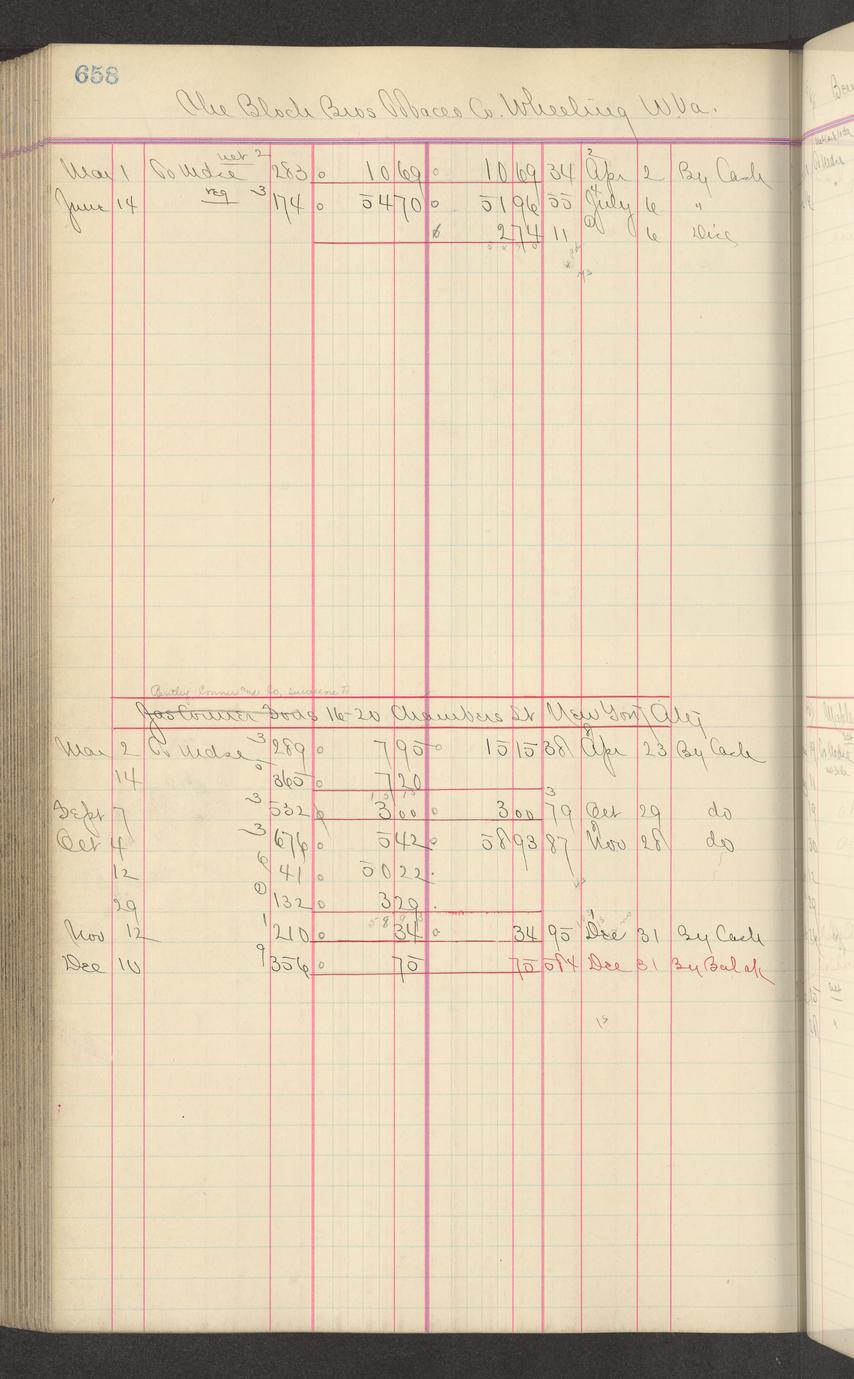 658
The Bloch Bros Tobacco Co. Wheeling W.Va.
Mar 1 To Mdse net 2 283 10 69 10 69 34 2 Apr 2 By Cash
June 14 reg 3 174 54 70 51 96 55 4 July 6 "
2 74 11 6 Disc
Successors to
Jas Conner Sons 16-20 Chambers St New York City
Mar 2 To Mdse 3 289 7 95 15 15 38 Apr 23 By Cash
14 365 7 20
Sept 7 3 532 3 00 3 00 79 3 Oct 29 do
Oct 4 3 676 5 42 58 93 87 Nov 28 do
12 6 41 50 22
29 132 3 29
Nov 12 1 210 34 34 95 1 Dec 31 By Cash
Dec 10 9 356 75 75 584 Dec 31 By Bal